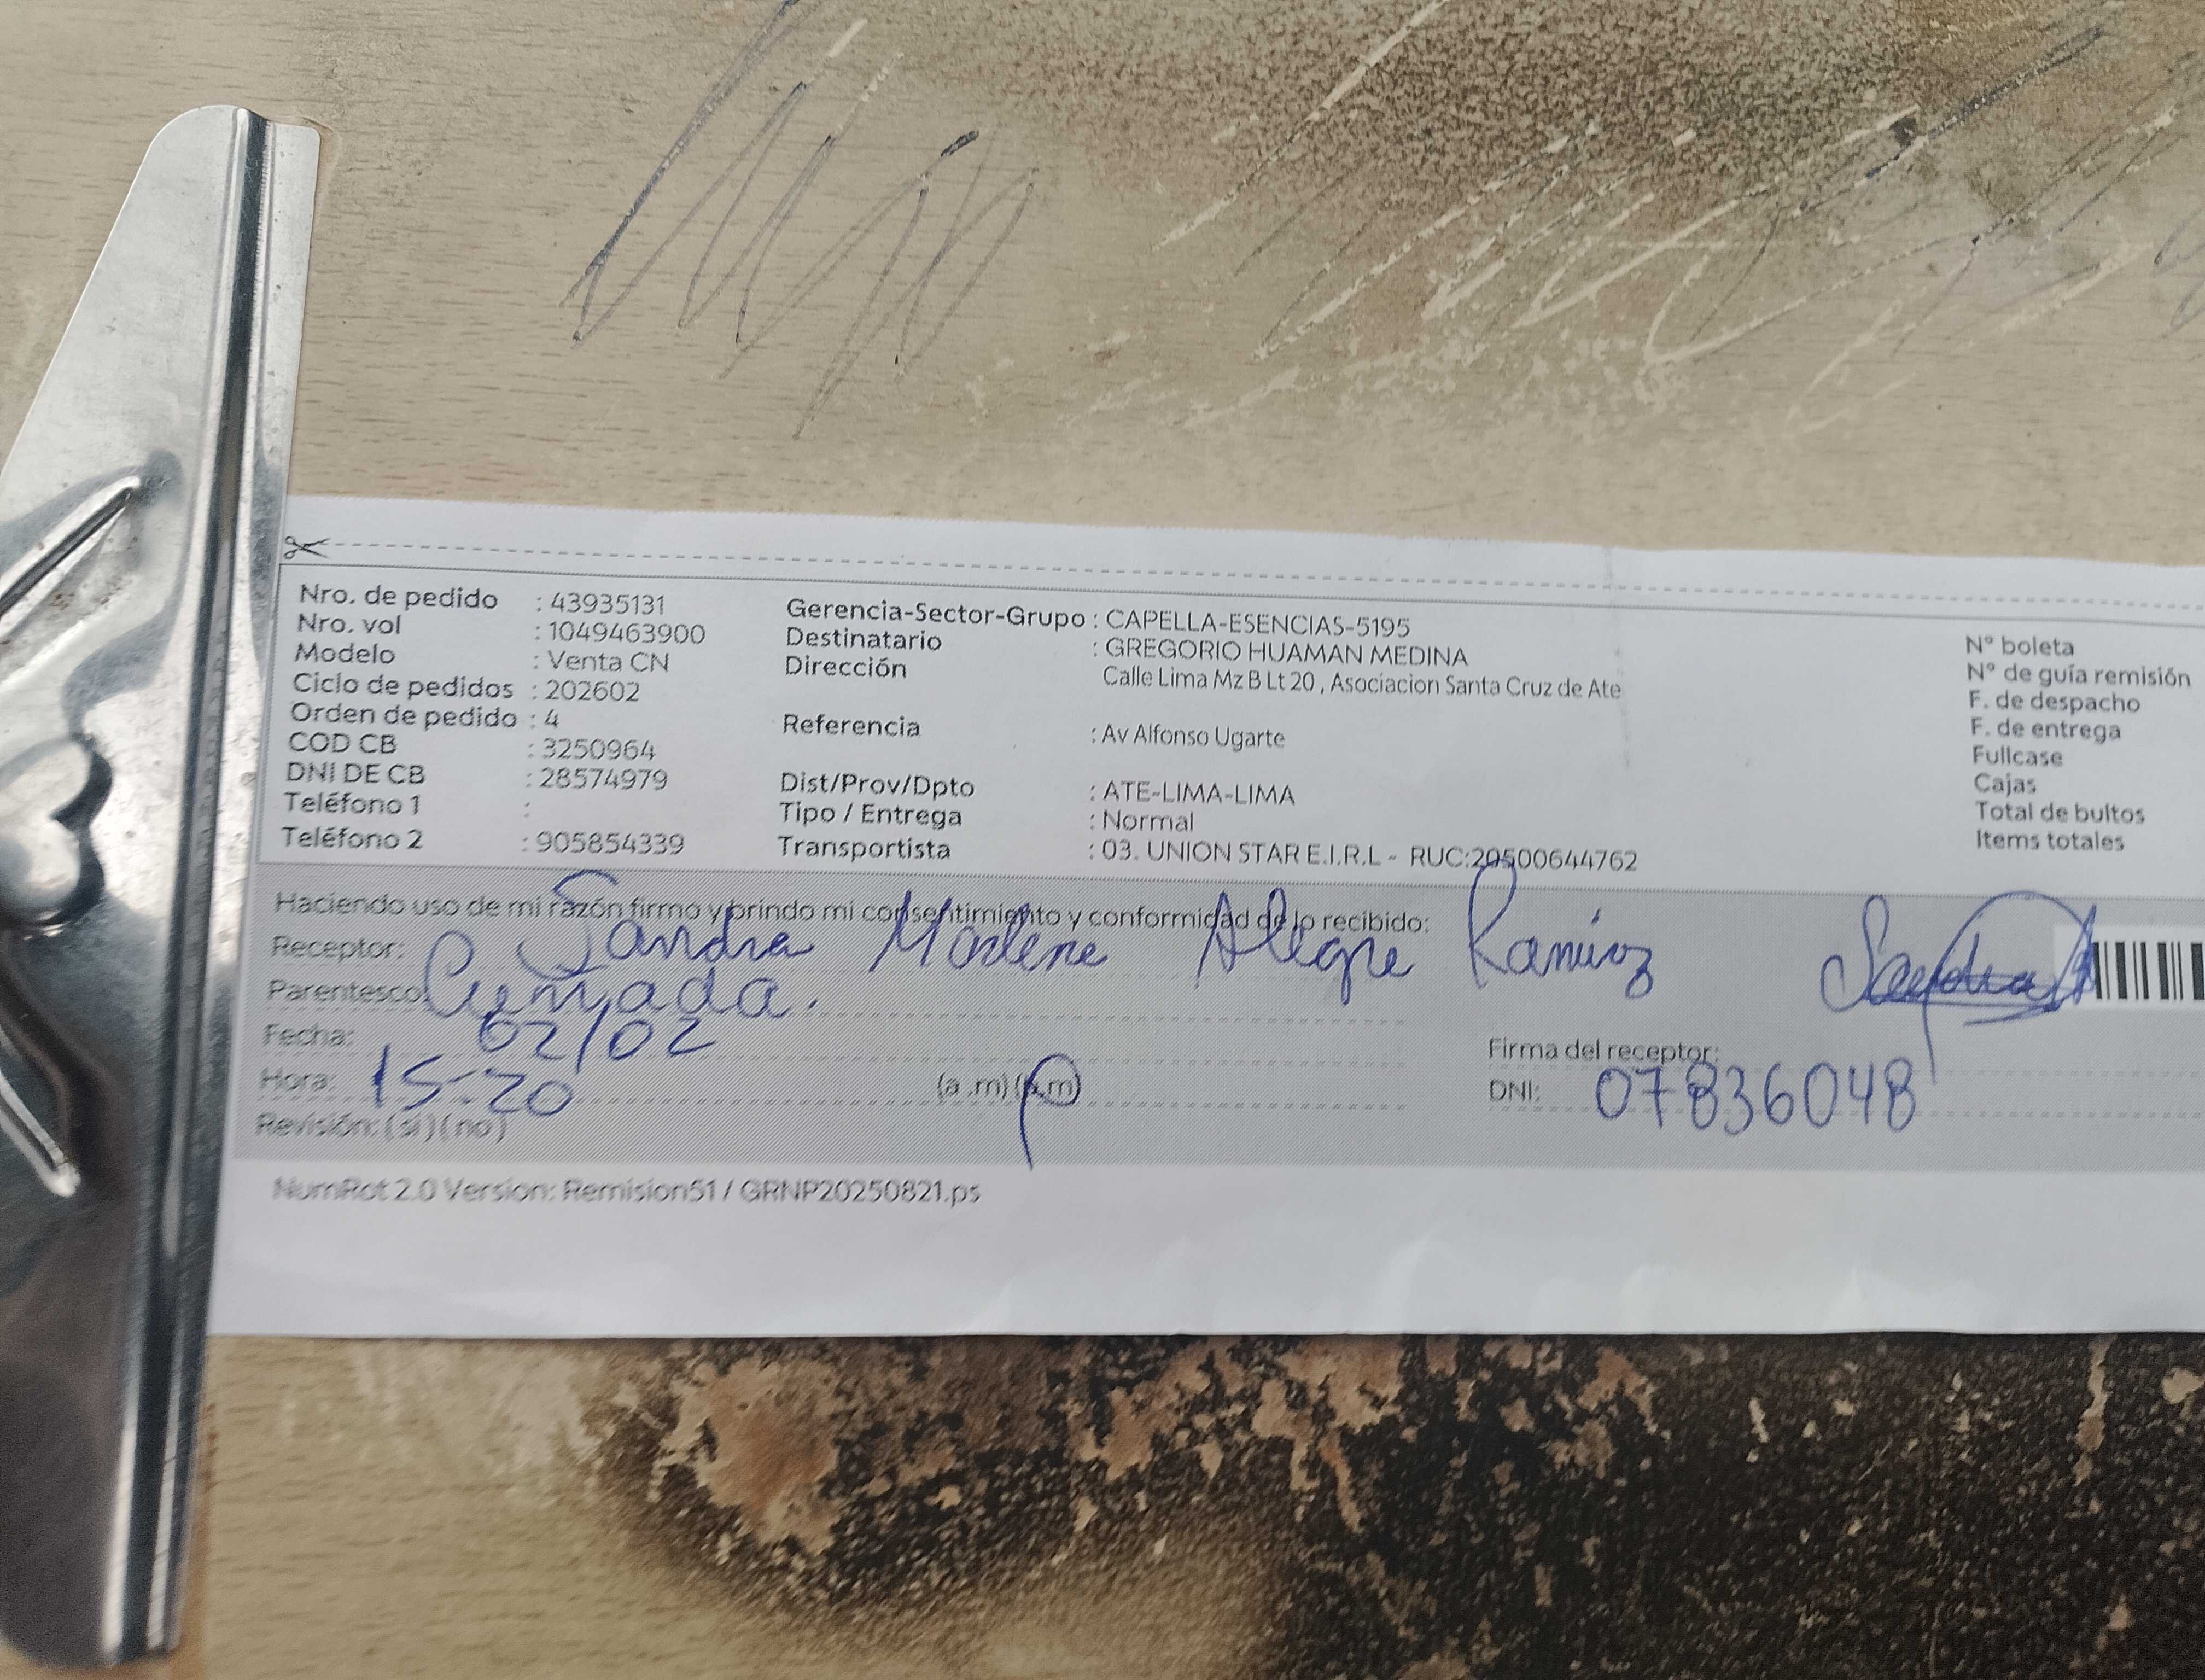 Nro. de pedido : 43935131
Nro. vol : 1049463900
Modelo : Venta CN
Ciclo de pedidos : 202602
Orden de pedido : 4
COD CB : 3250964
DNI DE CB : 28574979
Teléfono 1 :
Teléfono 2 : 905854339
Gerencia-Sector-Grupo : CAPELLA-ESENCIAS-5195
Destinatario : GREGORIO HUAMAN MEDINA
Dirección Calle Lima Mz B Lt 20 , Asociacion Santa Cruz de Ate
Referencia : Av Alfonso Ugarte
Dist/Prov/Dpto : ATE-LIMA-LIMA
Tipo / Entrega : Normal
Transportista : 03. UNION STAR E.I.R.L - RUC:20500644762
N° boleta
N° de guía remisión
F. de despacho
F. de entrega
Fullcase
Cajas
Total de bultos
Items totales
Haciendo uso de mi razón firmo y brindo mi consentimiento y conformidad de lo recibido:
Receptor: Sandra Marlene Alegre Ramirez
Parentesco: Cuñada.
Fecha: 02/02
Hora: 15:20 (a .m) (p.m)
Revisión: (si) (no)
Sandra
Firma del receptor:
DNI: 07836048
NumRot 2.0 Version: Remision51 / GRNP20250821.ps